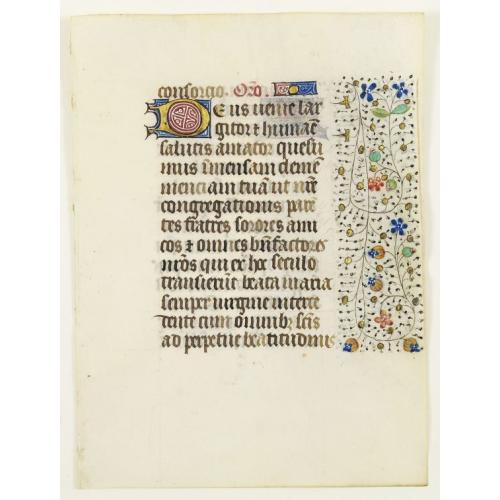 consorcio. Oro.
Deus venie lar
gitor & humane
salutis amator quesu
mus immensam cleme
menciam tua ut nre
congregationis pare
tes fratres sorores ami
cos & omnes bnfactores
nros qui ex hoc seculo
transierut beata maria
semper virgine interce
dente cum omnibz scis
ad perpetue beatitudinis